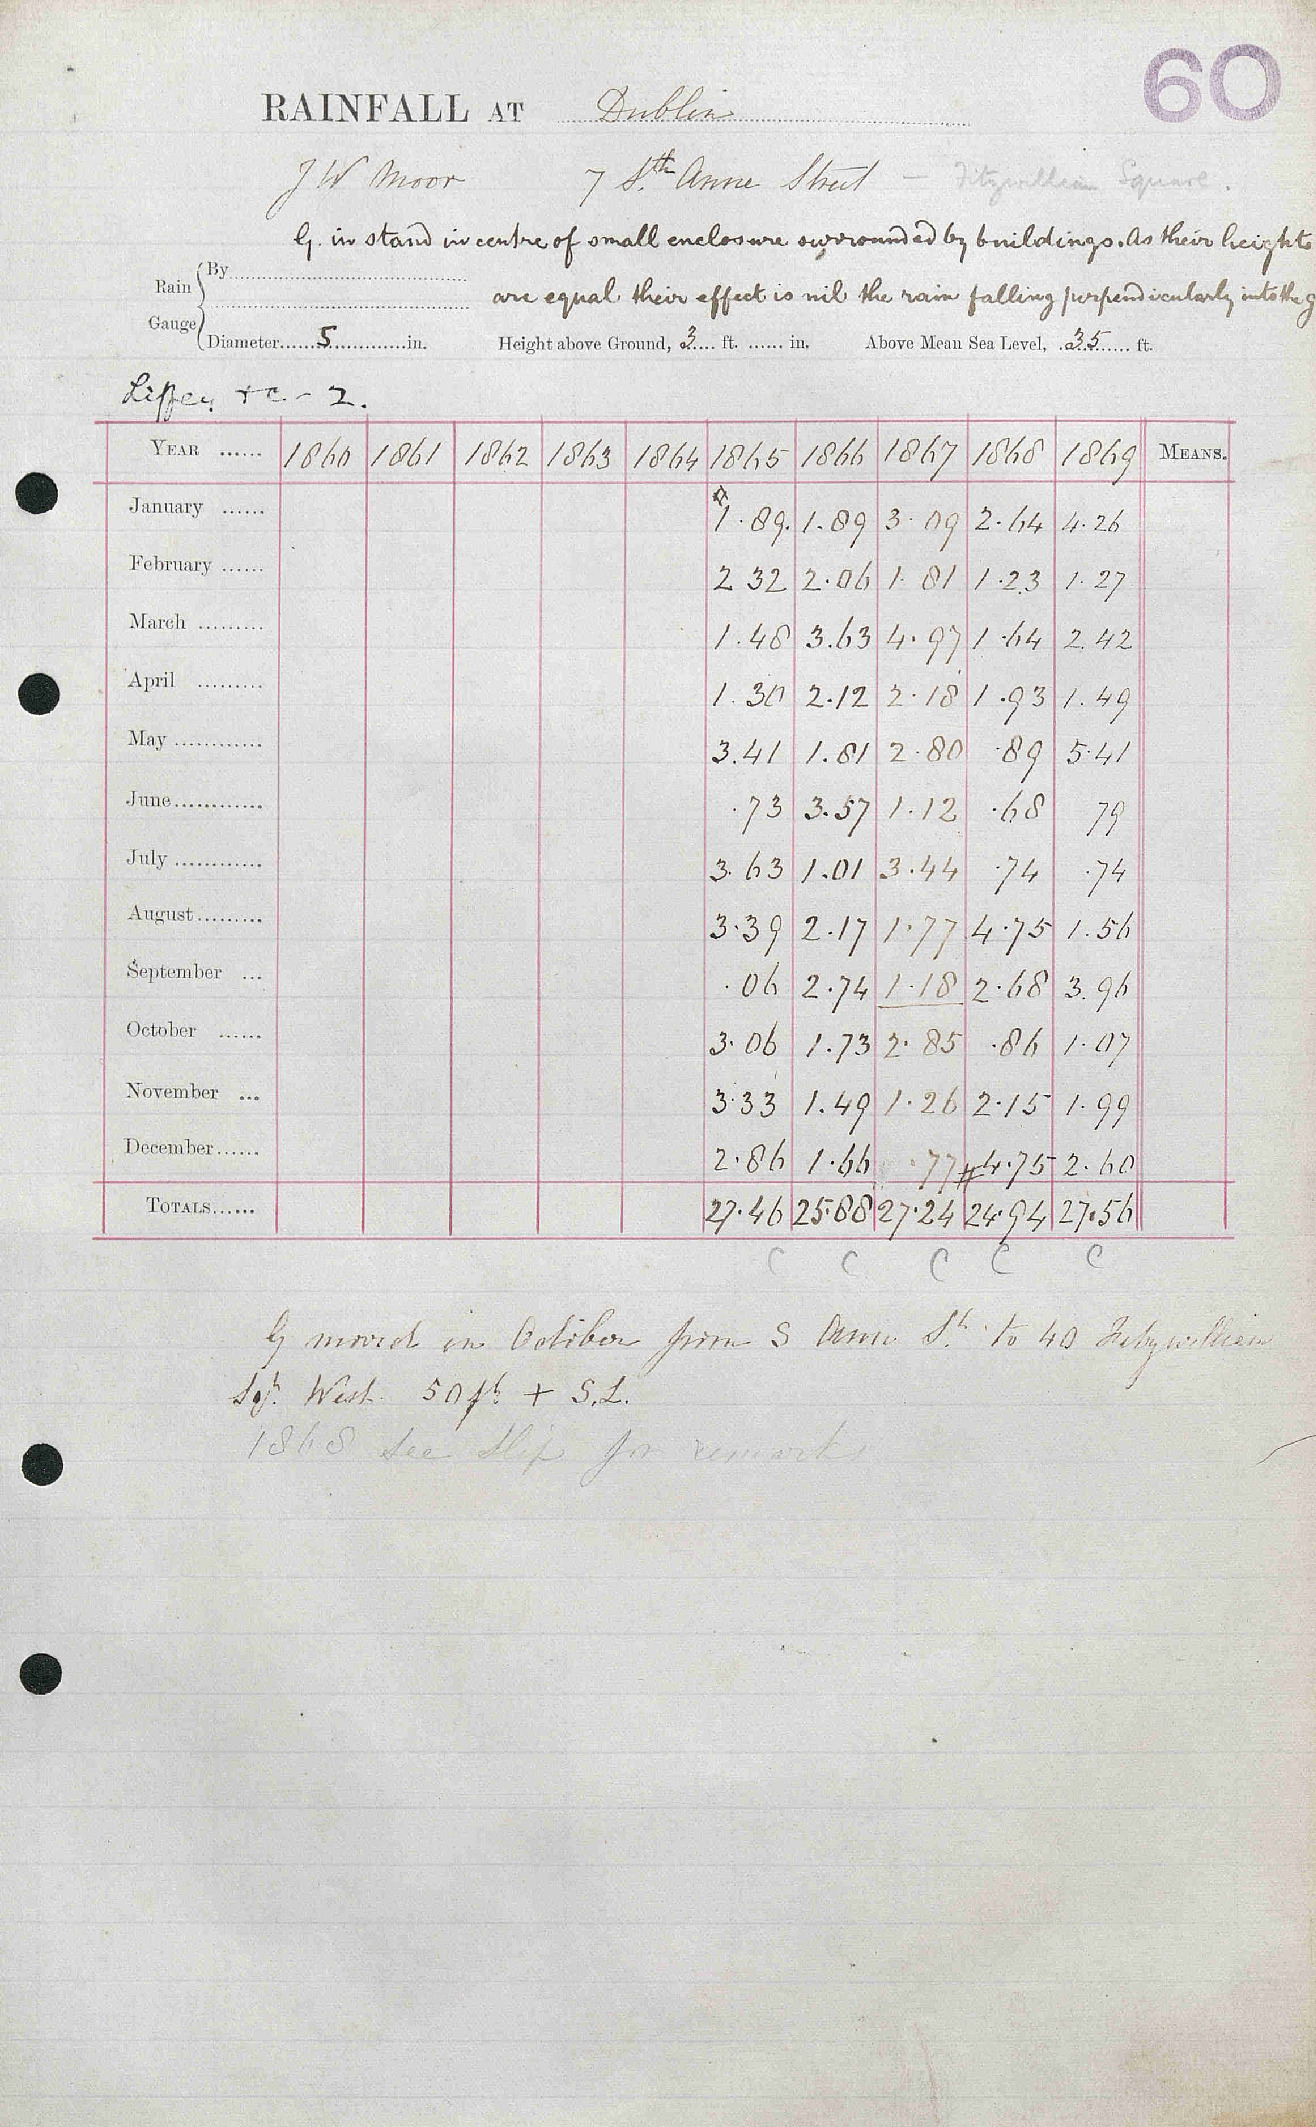 60
RAINFALL AT Dublin
J W Moor 7 Sth Anne Street - Fitzwilliam Square.
G. in stand in centre of small enclosure surrounded by buildings. As their heights
are equal their effect is nil the rain falling perpendicularly into the g
Rain Gauge By
Diameter......5............in. Height above Ground, 3.... ft. ...... in. Above Mean Sea Level, .35...... ft.
Liffey &c. - 2.
YEAR ...... 1860 1861 1862 1863 1864 1865 1866 1867 1868 1869 MEANS.
January ...... 1.89. 1.89 3.09 2.64 4.26
February ...... 2 32 2.06 1.81 1.23 1.27
March ......... 1.48 3.63 4.97 1.64 2.42
April ......... 1.30 2.12 2.18 1.93 1.49
May ............ 3.41 1.81 2.80 .89 5.41
June............ .73 3.57 1.12 .68 79
July ............ 3.63 1.01 3.44 .74 .74
August......... 3.39 2.17 1.77 4.75 1.56
September ... .06 2.74 1.18 2.68 3.96
October ...... 3.06 1.73 2.85 .86 1.07
November ... 3.33 1.49 1.26 2.15 1.99
December...... 2.86 1.66 .77 #4.75 2.60
TOTALS...... 27.46 25.88 27.24 24.94 27.56
C C C C C
G moved in October from S Anne St. to 40 Fitzwilliam
Sq. West 50ft + S.L.
1868 See Slip for remarks